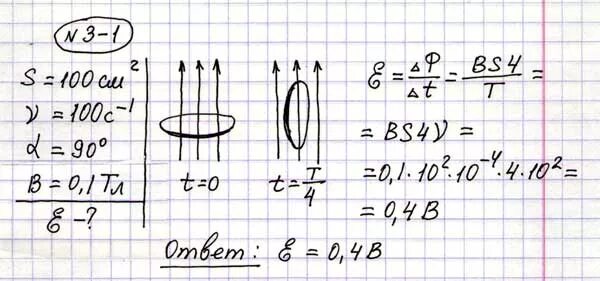 N 3-1
S = 100 см²
ν = 100 с⁻¹
α = 90°
B = 0,1 Тл
Ɛ - ?
t = 0
t = T/4
Ɛ = ΔΦ/Δt = BS4/T =
= BS4ν =
= 0,1 · 10² · 10⁻⁴ · 4 · 10² =
= 0,4 В
Ответ: Ɛ = 0,4 В